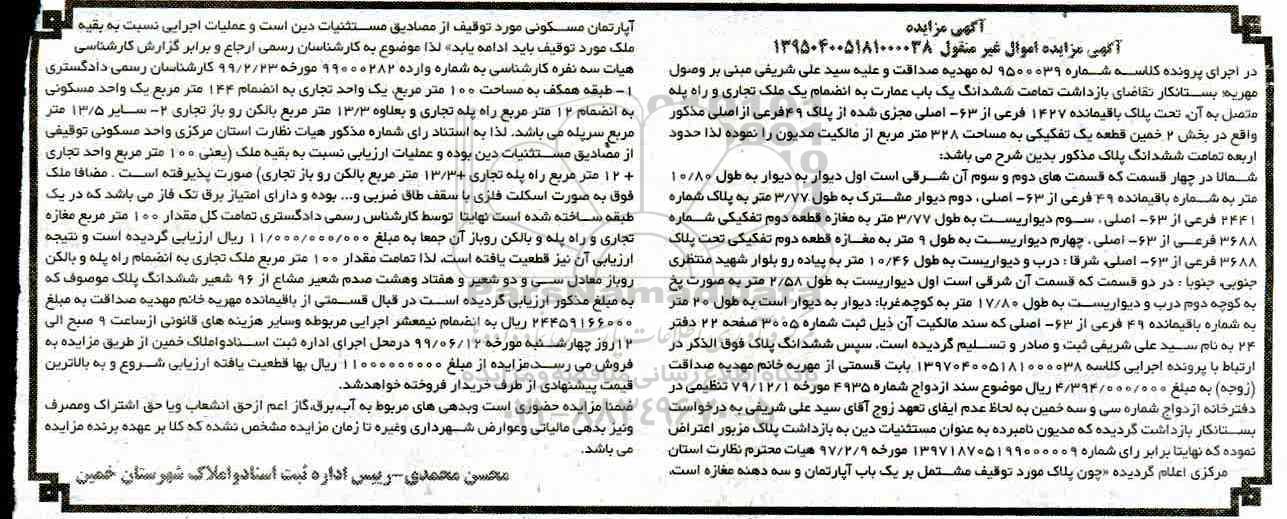 آگهی مزایده
آگهی مزایده اموال غیر منقول ۱۳۹۵۰۴۰۰۵۱۸۱۰۰۰۰۳۸
در اجرای پرونده کلاسه شماره ۹۵۰۰۰۳۹ له مهدیه صداقت و علیه سید علی شریفی مبنی بر وصول
مهریه؛ بستانکار تقاضای بازداشت تمامت ششدانگ یک باب عمارت به انضمام یک ملک تجاری و راه پله
متصل به آن، تحت پلاک باقیمانده ۱۴۲۷ فرعی از ۶۳- اصلی مجزی شده از پلاک ۴۹فرعی ازاصلی مذکور
واقع در بخش ۲ خمین قطعه یک تفکیکی به مساحت ۳۲۸ متر مربع از مالکیت مدیون را نموده لذا حدود
اربعه تمامت ششدانگ پلاک مذکور بدین شرح می باشد:
شمالا در چهار قسمت که قسمت های دوم و سوم آن شرقی است اول دیوار به دیوار به طول ۱۰/۸۰
متر به شماره باقیمانده ۴۹ فرعی از ۶۳- اصلی ، دوم دیوار مشترک به طول ۳/۷۷ متر به پلاک شماره
۲۴۴۱ فرعی از ۶۳- اصلی ، سوم دیواریست به طول ۳/۷۷ متر به مغازه قطعه دوم تفکیکی شماره
۳۶۸۸ فرعی از ۶۳- اصلی ، چهارم دیواریست به طول ۹ متر به مغازه قطعه دوم تفکیکی تحت پلاک
۳۶۸۸ فرعی از ۶۳- اصلی، شرقا : درب و دیواریست به طول ۱۰/۴۶ متر به پیاده رو بلوار شهید منتظری
جنوبی، جنوبا : در دو قسمت که قسمت آن شرقی است اول دیواریست به طول ۲/۵۸ متر به صورت پخ
به کوچه دوم درب و دیواریست به طول ۱۷/۸۰ متر به کوچه،غربا: دیوار به دیوار است به طول ۲۰ متر
به شماره باقیمانده ۴۹ فرعی از ۶۳- اصلی که سند مالکیت آن ذیل ثبت شماره ۳۰۰۵ صفحه ۲۲ دفتر
۲۴ به نام سید علی شریفی ثبت و صادر و تسلیم گردیده است. سپس ششدانگ پلاک فوق الذکر در
ارتباط با پرونده اجرایی کلاسه ۱۳۹۷۰۴۰۰۵۱۸۱۰۰۰۰۳۸ بابت قسمتی از مهریه خانم مهدیه صداقت
(زوجه) به مبلغ ۴/۳۹۴/۰۰۰/۰۰۰ ریال موضوع سند ازدواج شماره ۴۹۳۵ مورخه ۷۹/۱۲/۱ تنظیمی در
دفترخانه ازدواج شماره سی و سه خمین به لحاظ عدم ایفای تعهد زوج آقای سید علی شریفی به درخواست
بستانکار بازداشت گردیده که مدیون نامبرده به عنوان مستثنیات دین به بازداشت پلاک مزبور اعتراض
نموده که نهایتا برابر رای شماره ۱۳۹۷۱۸۷۰۵۱۹۹۰۰۰۰۰۹ مورخه ۹۷/۲/۹ هیات محترم نظارت استان
مرکزی اعلام گردیده «چون پلاک مورد توقیف مشتمل بر یک باب آپارتمان و سه دهنه مغازه است،
آپارتمان مسکونی مورد توقیف از مصادیق مستثنیات دین است و عملیات اجرایی نسبت به بقیه
ملک مورد توقیف باید ادامه یابد» لذا موضوع به کارشناسان رسمی ارجاع و برابر گزارش کارشناسی
هیات سه نفره کارشناسی به شماره وارده ۹۹۰۰۰۲۸۲ مورخه ۹۹/۲/۲۳ کارشناسان رسمی دادگستری
۱- طبقه همکف به مساحت ۱۰۰ متر مربع، یک واحد تجاری به انضمام ۱۴۴ متر مربع یک واحد مسکونی
به انضمام ۱۲ متر مربع راه پله تجاری و بعلاوه ۱۳/۳ متر مربع بالکن رو باز تجاری ۲- سایر ۱۳/۵ متر
مربع سرپله می باشد. لذا به استناد رای شماره مذکور هیات نظارت استان مرکزی واحد مسکونی توقیفی
از مصادیق مستثنیات دین بوده و عملیات ارزیابی نسبت به بقیه ملک (یعنی ۱۰۰ متر مربع واحد تجاری
+ ۱۲ متر مربع راه پله تجاری +۱۳/۳ متر مربع بالکن رو باز تجاری) صورت پذیرفته است . مضافا ملک
فوق به صورت اسکلت فلزی با سقف طاق ضربی و... بوده و دارای امتیاز برق تک فاز می باشد که در یک
طبقه ساخته شده است نهایتا توسط کارشناس رسمی دادگستری تمامت کل مقدار ۱۰۰ متر مربع مغازه
تجاری و راه پله و بالکن روباز آن جمعا به مبلغ ۱۱/۰۰۰/۰۰۰/۰۰۰ ریال ارزیابی گردیده است و نتیجه
ارزیابی آن نیز قطعیت یافته است، لذا تمامت مقدار ۱۰۰ متر مربع ملک تجاری به انضمام راه پله و بالکن
روباز معادل سی و دو شعیر و هفتاد وهشت صدم شعیر مشاع از ۹۶ شعیر ششدانگ پلاک موصوف که
به مبلغ مذکور ارزیابی گردیده است در قبال قسمتی از باقیمانده مهریه خانم مهدیه صداقت به مبلغ
۲۴۴۵۹۱۶۶۰۰۰ ریال به انضمام نیمعشر اجرایی مربوطه وسایر هزینه های قانونی ازساعت ۹ صبح الی
۱۲روز چهارشنبه مورخه ۹۹/۰۶/۱۲ درمحل اجرای اداره ثبت اسنادواملاک خمین از طریق مزایده به
فروش می رسد،مزایده از مبلغ ۱۱۰۰۰۰۰۰۰۰۰ ریال بها قطعیت یافته ارزیابی شروع و به بالاترین
قیمت پیشنهادی از طرف خریدار فروخته خواهدشد.
ضمنا مزایده حضوری است وبدهی های مربوط به آب،برق،گاز اعم ازحق انشعاب ویا حق اشتراک ومصرف
ونیز بدهی مالیاتی وعوارض شهرداری وغیره تا زمان مزایده مشخص نشده که کلا بر عهده برنده مزایده
می باشد.
محسن محمدی-رییس اداره ثبت اسنادواملاک شهرستان خمین